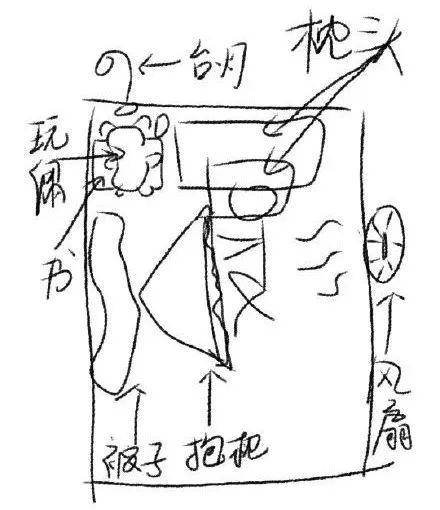 枕头
台月
玩偶
书
被子
抱枕
风扇